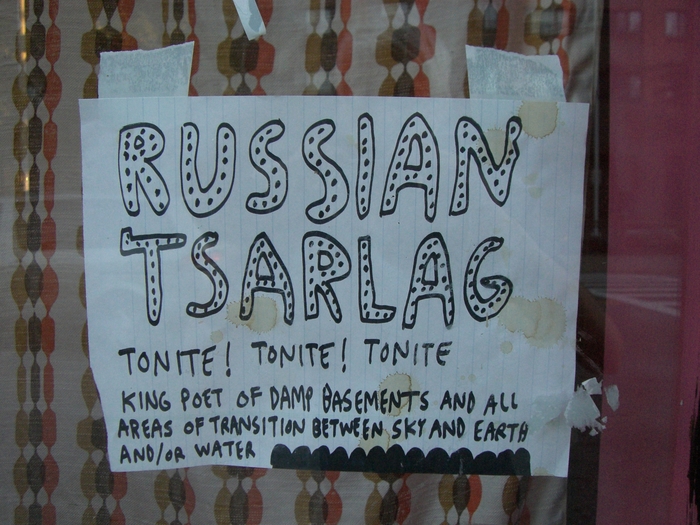 RUSSIAN
TSARLAG
TONITE! TONITE! TONITE
KING POET OF DAMP BASEMENTS AND ALL
AREAS OF TRANSITION BETWEEN SKY AND EARTH
AND/OR WATER